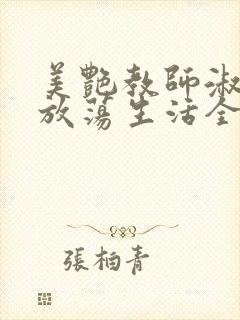 美艷教師淑
放蕩生活全
張柏青